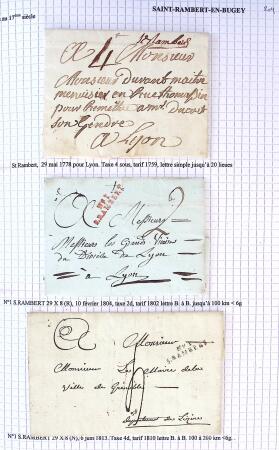 SAINT-RAMBERT-EN-BUGEY
au 17ème siècle
St Rambert
4
A Monsieur
Monsieur Durant maitre
menuisier en Rue thomassin
pour Remettre a mr
son Gendre
a Lyon
St Rambert, 29 mai 1778 pour Lyon. Taxe 4 sous, tarif 1759, lettre simple jusqu'à 20 lieues
N°1
S.RAMBERT
A Messieurs
Messieurs les Grands Vicaires
du Diocèse de Lyon
à Lyon
N°1 S.RAMBERT 29 X 8 (R), 10 février 1804, taxe 2d, tarif 1802 lettre B. à B. jusqu'à 100 km < 6g
N°1
S.RAMBERT
A Monsieur
Monsieur Le Maire de la
Ville de Grenoble
N°1 S.RAMBERT 29 X 8 (N), 6 juin 1813. Taxe 4d, tarif 1810 lettre B. à B. 100 à 200 km <6g...